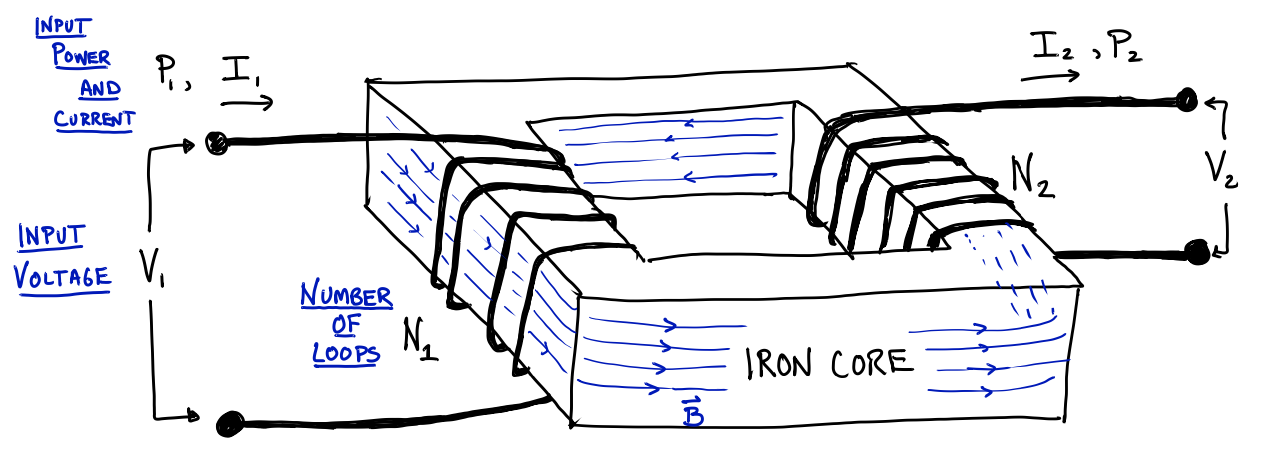 INPUT
POWER
AND
CURRENT
P₁, I₁
I₂, P₂
INPUT
VOLTAGE
V₁
NUMBER
OF
LOOPS
N₁
N₂
V₂
IRON CORE
B⃗